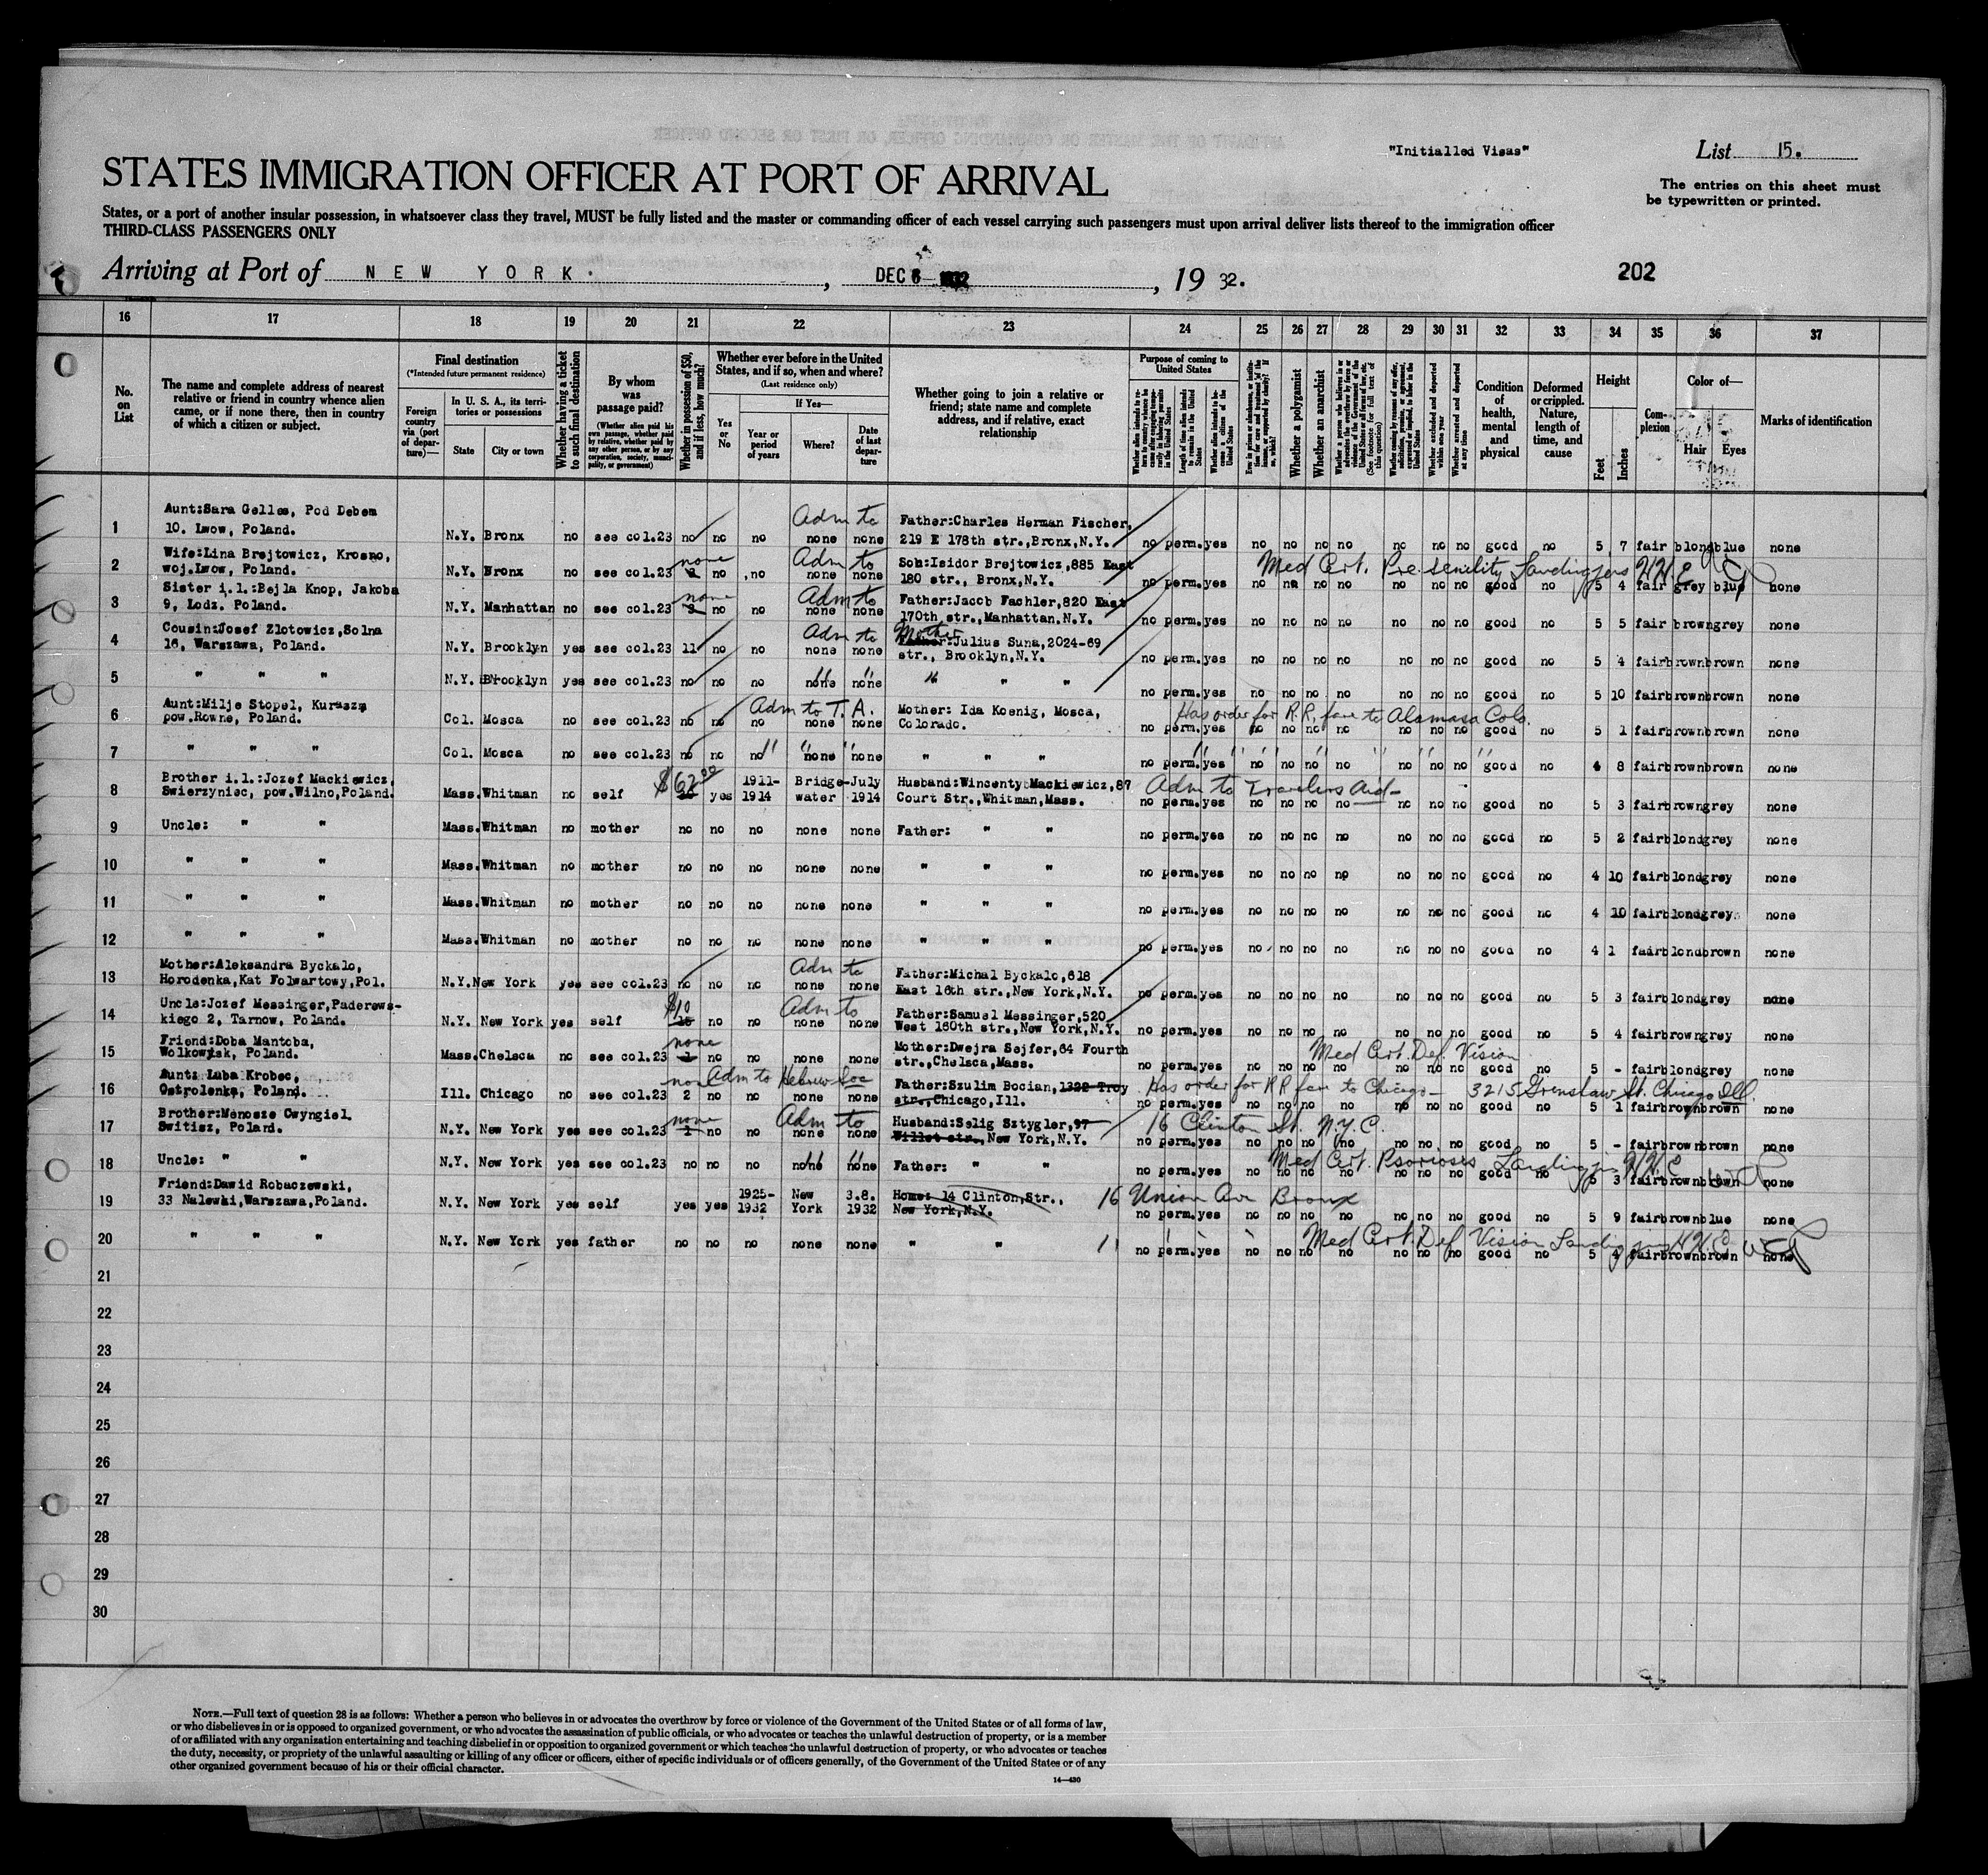 "Initialled Visas"
List 15.
STATES IMMIGRATION OFFICER AT PORT OF ARRIVAL
The entries on this sheet must
be typewritten or printed.
States, or a port of another insular possession, in whatsoever class they travel, MUST be fully listed and the master or commanding officer of each vessel carrying such passengers must upon arrival deliver lists thereof to the immigration officer
THIRD-CLASS PASSENGERS ONLY
Arriving at Port of NEW YORK. , DEC 6 1932 , 19 32.
202
16 17 18 19 20 21 22 23 24 25 26 27 28 29 30 31 32 33 34 35 36 37
No. on List
The name and complete address of nearest relative or friend in country whence alien came, or if none there, then in country of which a citizen or subject.
Final destination
(*Intended future permanent residence)
Foreign country via (port of departure)—
In U. S. A., its territories or possessions
State
City or town
Whether having a ticket to such final destination
By whom was passage paid?
(Whether alien paid his own passage, whether paid by relative, whether paid by any other person, or by any corporation, society, municipality, or government)
Whether in possession of $50, and if less, how much?
Whether ever before in the United States, and if so, when and where?
(Last residence only)
Yes or No
If Yes—
Year or period of years
Where?
Date of last departure
Whether going to join a relative or friend; state name and complete address, and if relative, exact relationship
Purpose of coming to United States
Whether a polygamist
Whether an anarchist
Condition of health, mental and physical
Deformed or crippled. Nature, length of time, and cause
Height
Feet
Inches
Complexion
Color of—
Hair
Eyes
Marks of identification
1 Aunt:Sara Gelles, Pod Debem
10. Lwow, Poland. N.Y. Bronx no see col.23 no no no none none Adm to Father:Charles Herman Fischer,
219 E 178th str.,Bronx,N.Y. no perm.yes no no no no no no no good no 5 7 fair blond blue none
2 Wife:Lina Brejtowicz, Krosno,
woj.Lwow, Poland. N.Y. Bronx no see col.23 none no no none none Adm to Son:Isidor Brejtowicz,885 East
180 str., Bronx,N.Y. no perm.yes no no no no no no no good no 5 4 fair grey blue none
Med Cert. Pre senility Landing
3 Sister i.l:Bejla Knop, Jakoba
9, Lodz. Poland. N.Y. Manhattan no see col.23 none 3 no no none none Adm to Father:Jacob Fachler,820 East
170th str.,Manhattan.N.Y. no perm.yes no no no no no no no good no 5 5 fair brown grey none
4 Cousin:Josef Zlotowicz,Solna
16, Warszawa, Poland. N.Y. Brooklyn yes see col.23 11 no no none none Adm to Mother Julius Suna,2024-69
str., Brooklyn,N.Y. no perm.yes no no no no no no no good no 5 4 fair brown brown none
5 " " " N.Y. Brooklyn yes see col.23 no no no none none " " " no perm.yes no no no no no no no good no 5 10 fair brown brown none
6 Aunt:Milje Stopel, Kurasza
pow.Rowne, Poland. Col. Mosca no see col.23 no no no none none Adm to T.A. Mother: Ida Koenig, Mosca,
Colorado. no perm.yes no no no no no no no good no 5 1 fair brown brown none
Has order for R.R. fare to Alamasa Colo.
7 " " " Col. Mosca no see col.23 no no no none none " " " no perm.yes no no no no no no no good no 4 8 fair brown brown none
8 Brother i.l.:Jozef Mackiewicz,
Swierzyniec, pow.Wilno,Poland. Mass. Whitman no self $62.00 yes 1911-1914 Bridge-water July 1914 Husband:Wincenty Mackiewicz,87
Court Str.,Whitman,Mass. no perm.yes no no no no no no no good no 5 3 fair brown grey none
Adm to Travelers Aid
9 Uncle: " " Mass. Whitman no mother no no no none none Father: " " no perm.yes no no no no no no no good no 5 2 fair blond grey none
10 " " " Mass. Whitman no mother no no no none none " " " no perm.yes no no no no no no no good no 4 10 fair blond grey none
11 " " " Mass. Whitman no mother no no no none none " " " no perm.yes no no no no no no no good no 4 10 fair blond grey none
12 " " " Mass. Whitman no mother no no no none none " " " no perm.yes no no no no no no no good no 4 1 fair blond brown none
13 Mother:Aleksandra Byckalo,
Horodenka,Kat Folwartowy,Pol. N.Y. New York yes see col.23 no no no none none Adm to Father:Michal Byckalo,618
East 16th str.,New York,N.Y. no perm.yes no no no no no no no good no 5 3 fair blond grey none
14 Uncle:Jozef Messinger,Paderews-
kiego 2, Tarnow, Poland. N.Y. New York yes self $10 no no none none Adm to Father:Samuel Messinger,520
West 160th str.,New York,N.Y. no perm.yes no no no no no no no good no 5 4 fair brown grey none
15 Friend:Doba Mantoba,
Wolkowysk, Poland. Mass. Chelsea no see col.23 none 1 no no none none Mother:Dwejra Sejfer,64 Fourth
str.,Chelsea,Mass. no perm.yes no no no no no no no good no 5 - fair blond grey none
Med Cert. Def. Vision
16 Aunt: Luba Krobec,
Ostrolenka, Poland. Ill. Chicago no see col.23 none 2 no no none none Adm to Hebrew Soc Father:Szulim Bocian,1322 Troy
str.,Chicago,Ill. no perm.yes no no no no no no no good no 5 1 fair brown brown none
Has order for RR fare to Chicago— 3215 Grenshaw St. Chicago Ill.
17 Brother:Menosze Cwyngiel
Switisz, Poland. N.Y. New York yes see col.23 none 1 no no none none Adm to Husband:Selig Sztygler,97
Willet str., New York,N.Y. no perm.yes no no no no no no no good no 5 - fair brown brown none
16 Clinton St. N.Y.C.
18 Uncle: " " N.Y. New York yes see col.23 no no no none none Father: " " no perm.yes no no no no no no no good no 5 3 fair brown brown none
Med Cert. Psoriosis Landing
19 Friend:Dawid Robaczewski,
33 Nalewki,Warszawa,Poland. N.Y. New York yes self yes yes 1925-1932 New York 3.8. 1932 Home: 14 Clinton,Str.,
New York,N.Y. no perm.yes no no no no no no no good no 5 9 fair brown blue none
16 Union Av Bronx
20 " " " N.Y. New York yes father no no no none none " " no perm.yes no no no no no no no good no 5 4 fair brown brown none
Med Cert. Def Vision Landing
21
22
23
24
25
26
27
28
29
30
NOTE.—Full text of question 28 is as follows: Whether a person who believes in or advocates the overthrow by force or violence of the Government of the United States or of all forms of law,
or who disbelieves in or is opposed to organized government, or who advocates the assassination of public officials, or who advocates or teaches the unlawful destruction of property, or is a member
of or affiliated with any organization entertaining and teaching disbelief in or opposition to organized government or which teaches the unlawful destruction of property, or who advocates or teaches
the duty, necessity, or propriety of the unlawful assaulting or killing of any officer or officers, either of specific individuals or of officers generally, of the Government of the United States or of any
other organized government because of his or their official character.
14—430